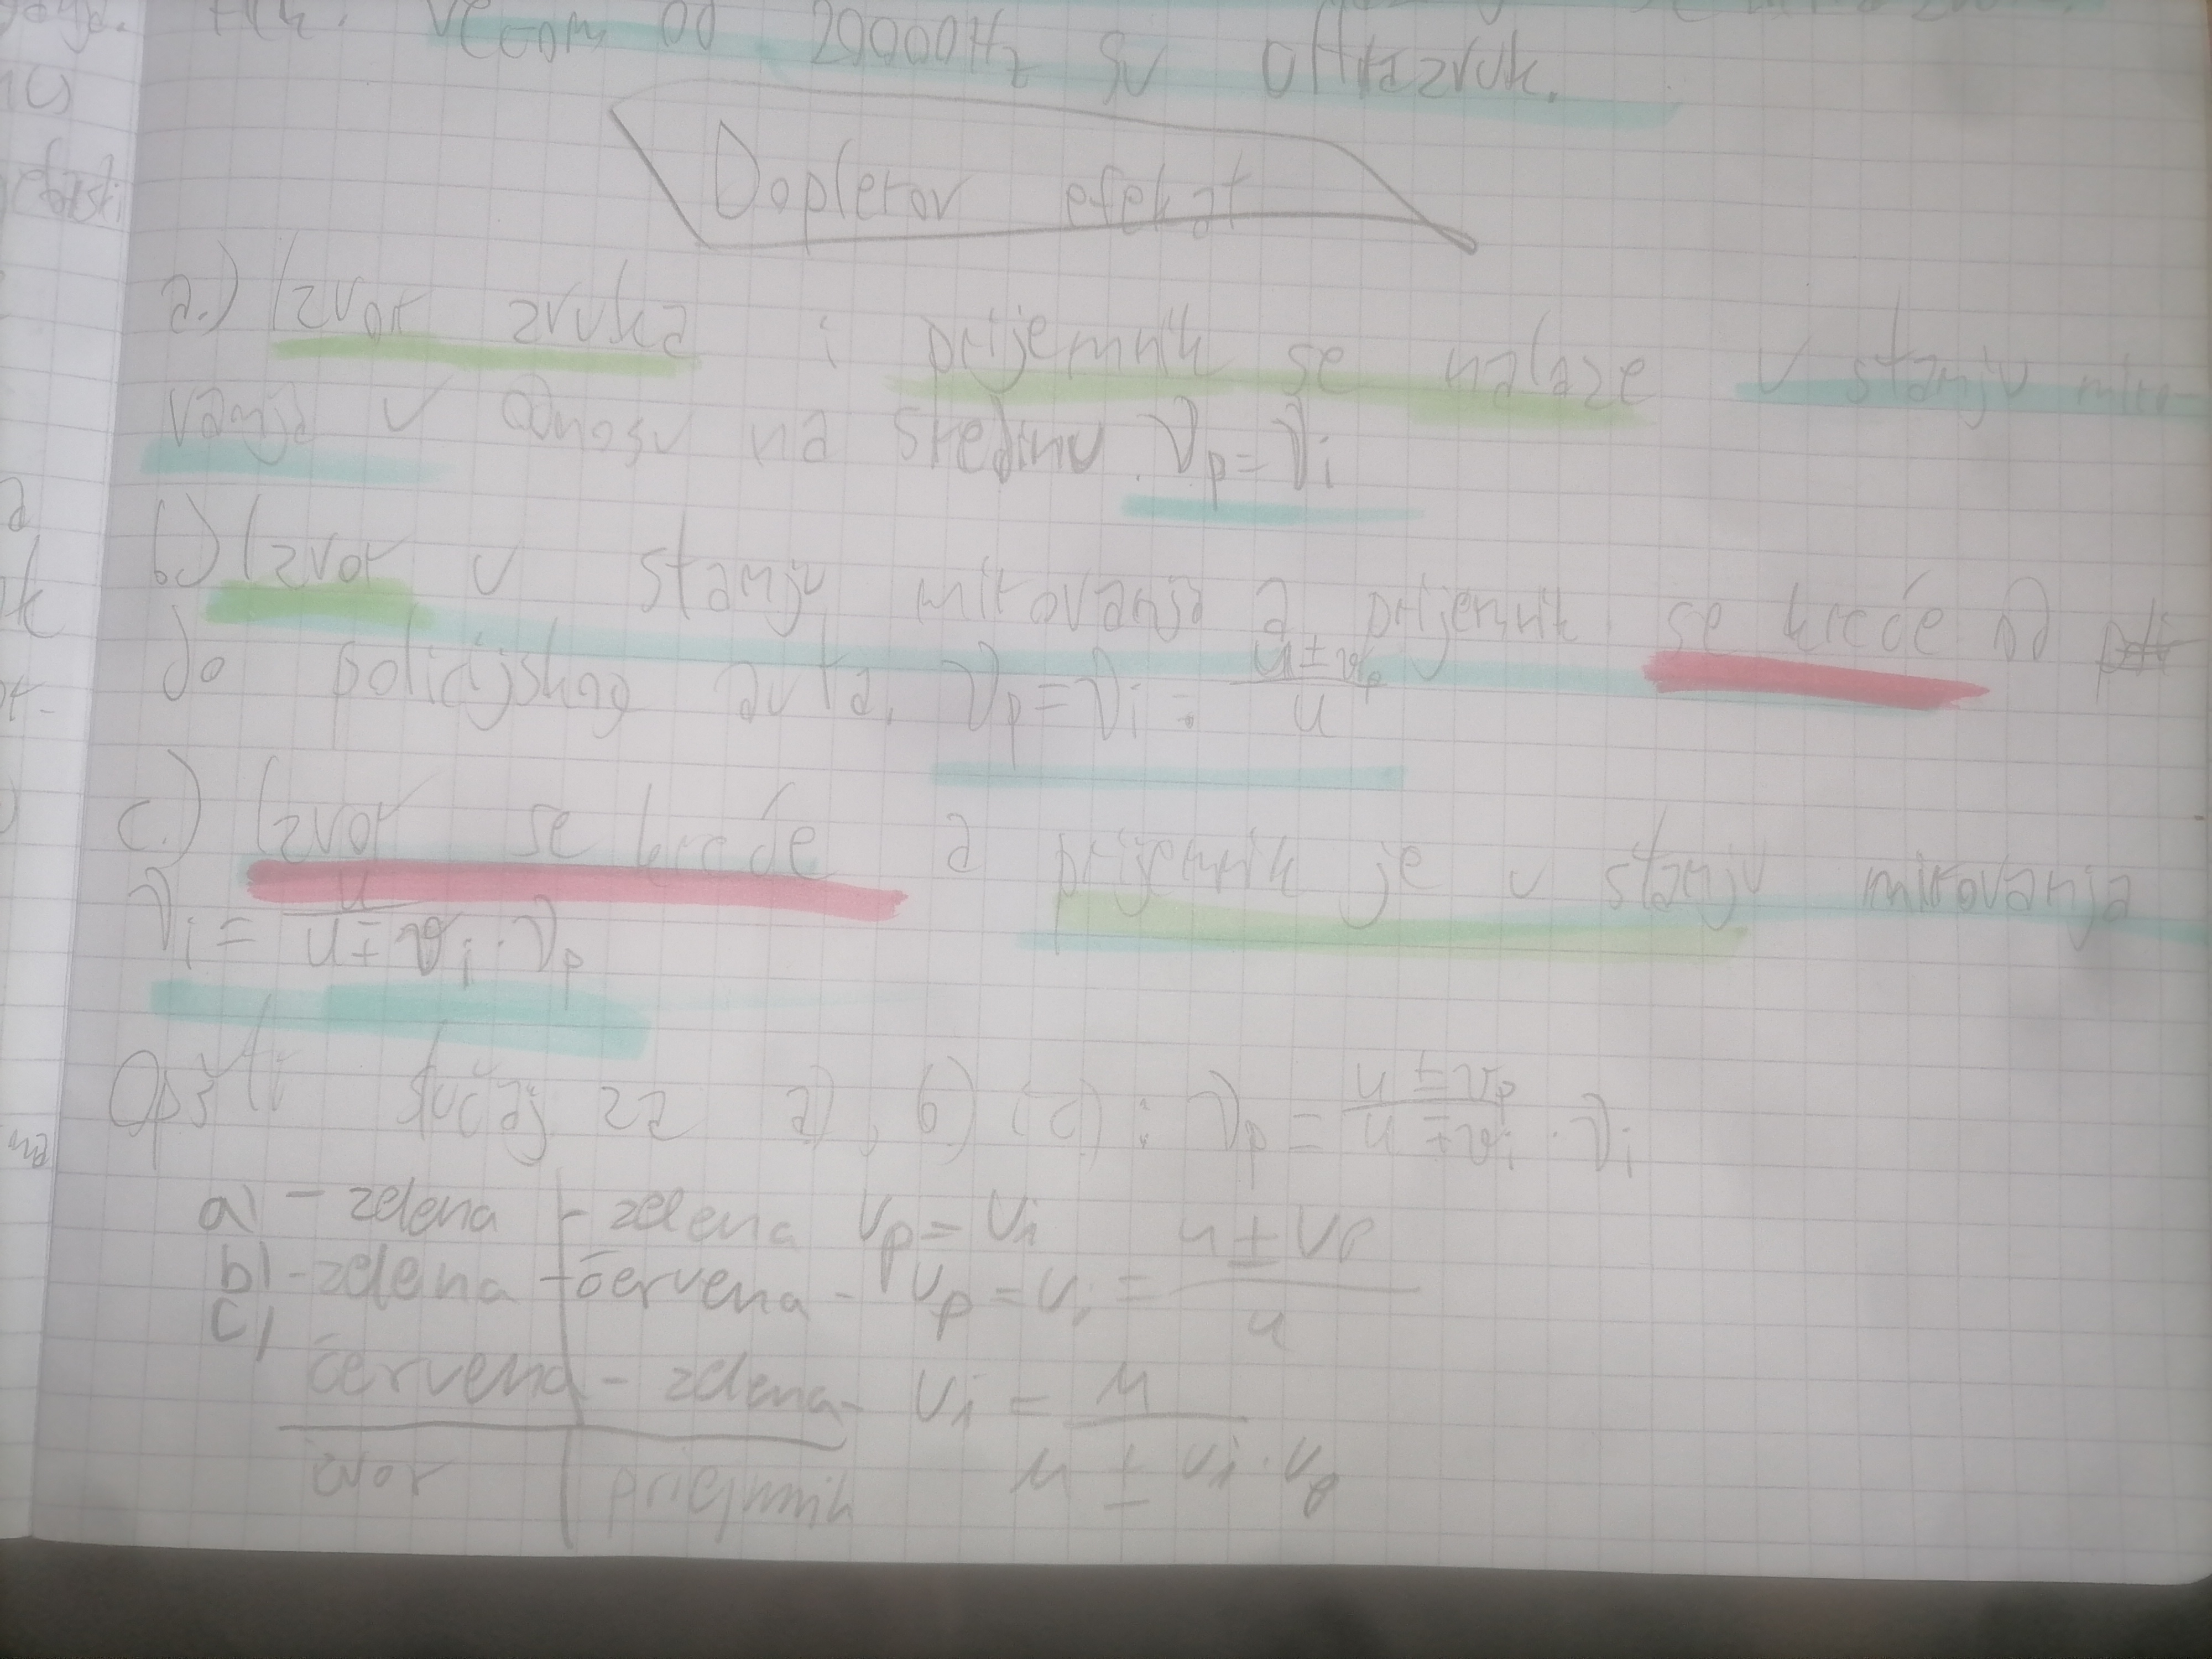 većom od 20000Hz su ultrazvuk.
Doplerov efekat
a.) Izvor zvuka i prijemnik se nalaze u stanju miro-
vanja u odnosu na sredinu. ν_p = ν_i
b.) Izvor u stanju mirovanja a prijemnik se kreće od
do policijskog auta. ν_p = ν_i = (u ± v_p)/u
c.) Izvor se kreće a prijemnik je u stanju mirovanja
ν_i = u/(u ∓ v_i · ν_p
Opšti slučaj za a), b) i c) : ν_p = (u ± v_p)/(u ∓ v_i) · ν_i
a) - zelena - zelena v_p = v_i
b) - zelena - červena - v_p = v_i = (u ± v_p)/u
c)
červena - zelena - v_i = u/(u ± v_i · v_p)
izvor | priejmnik